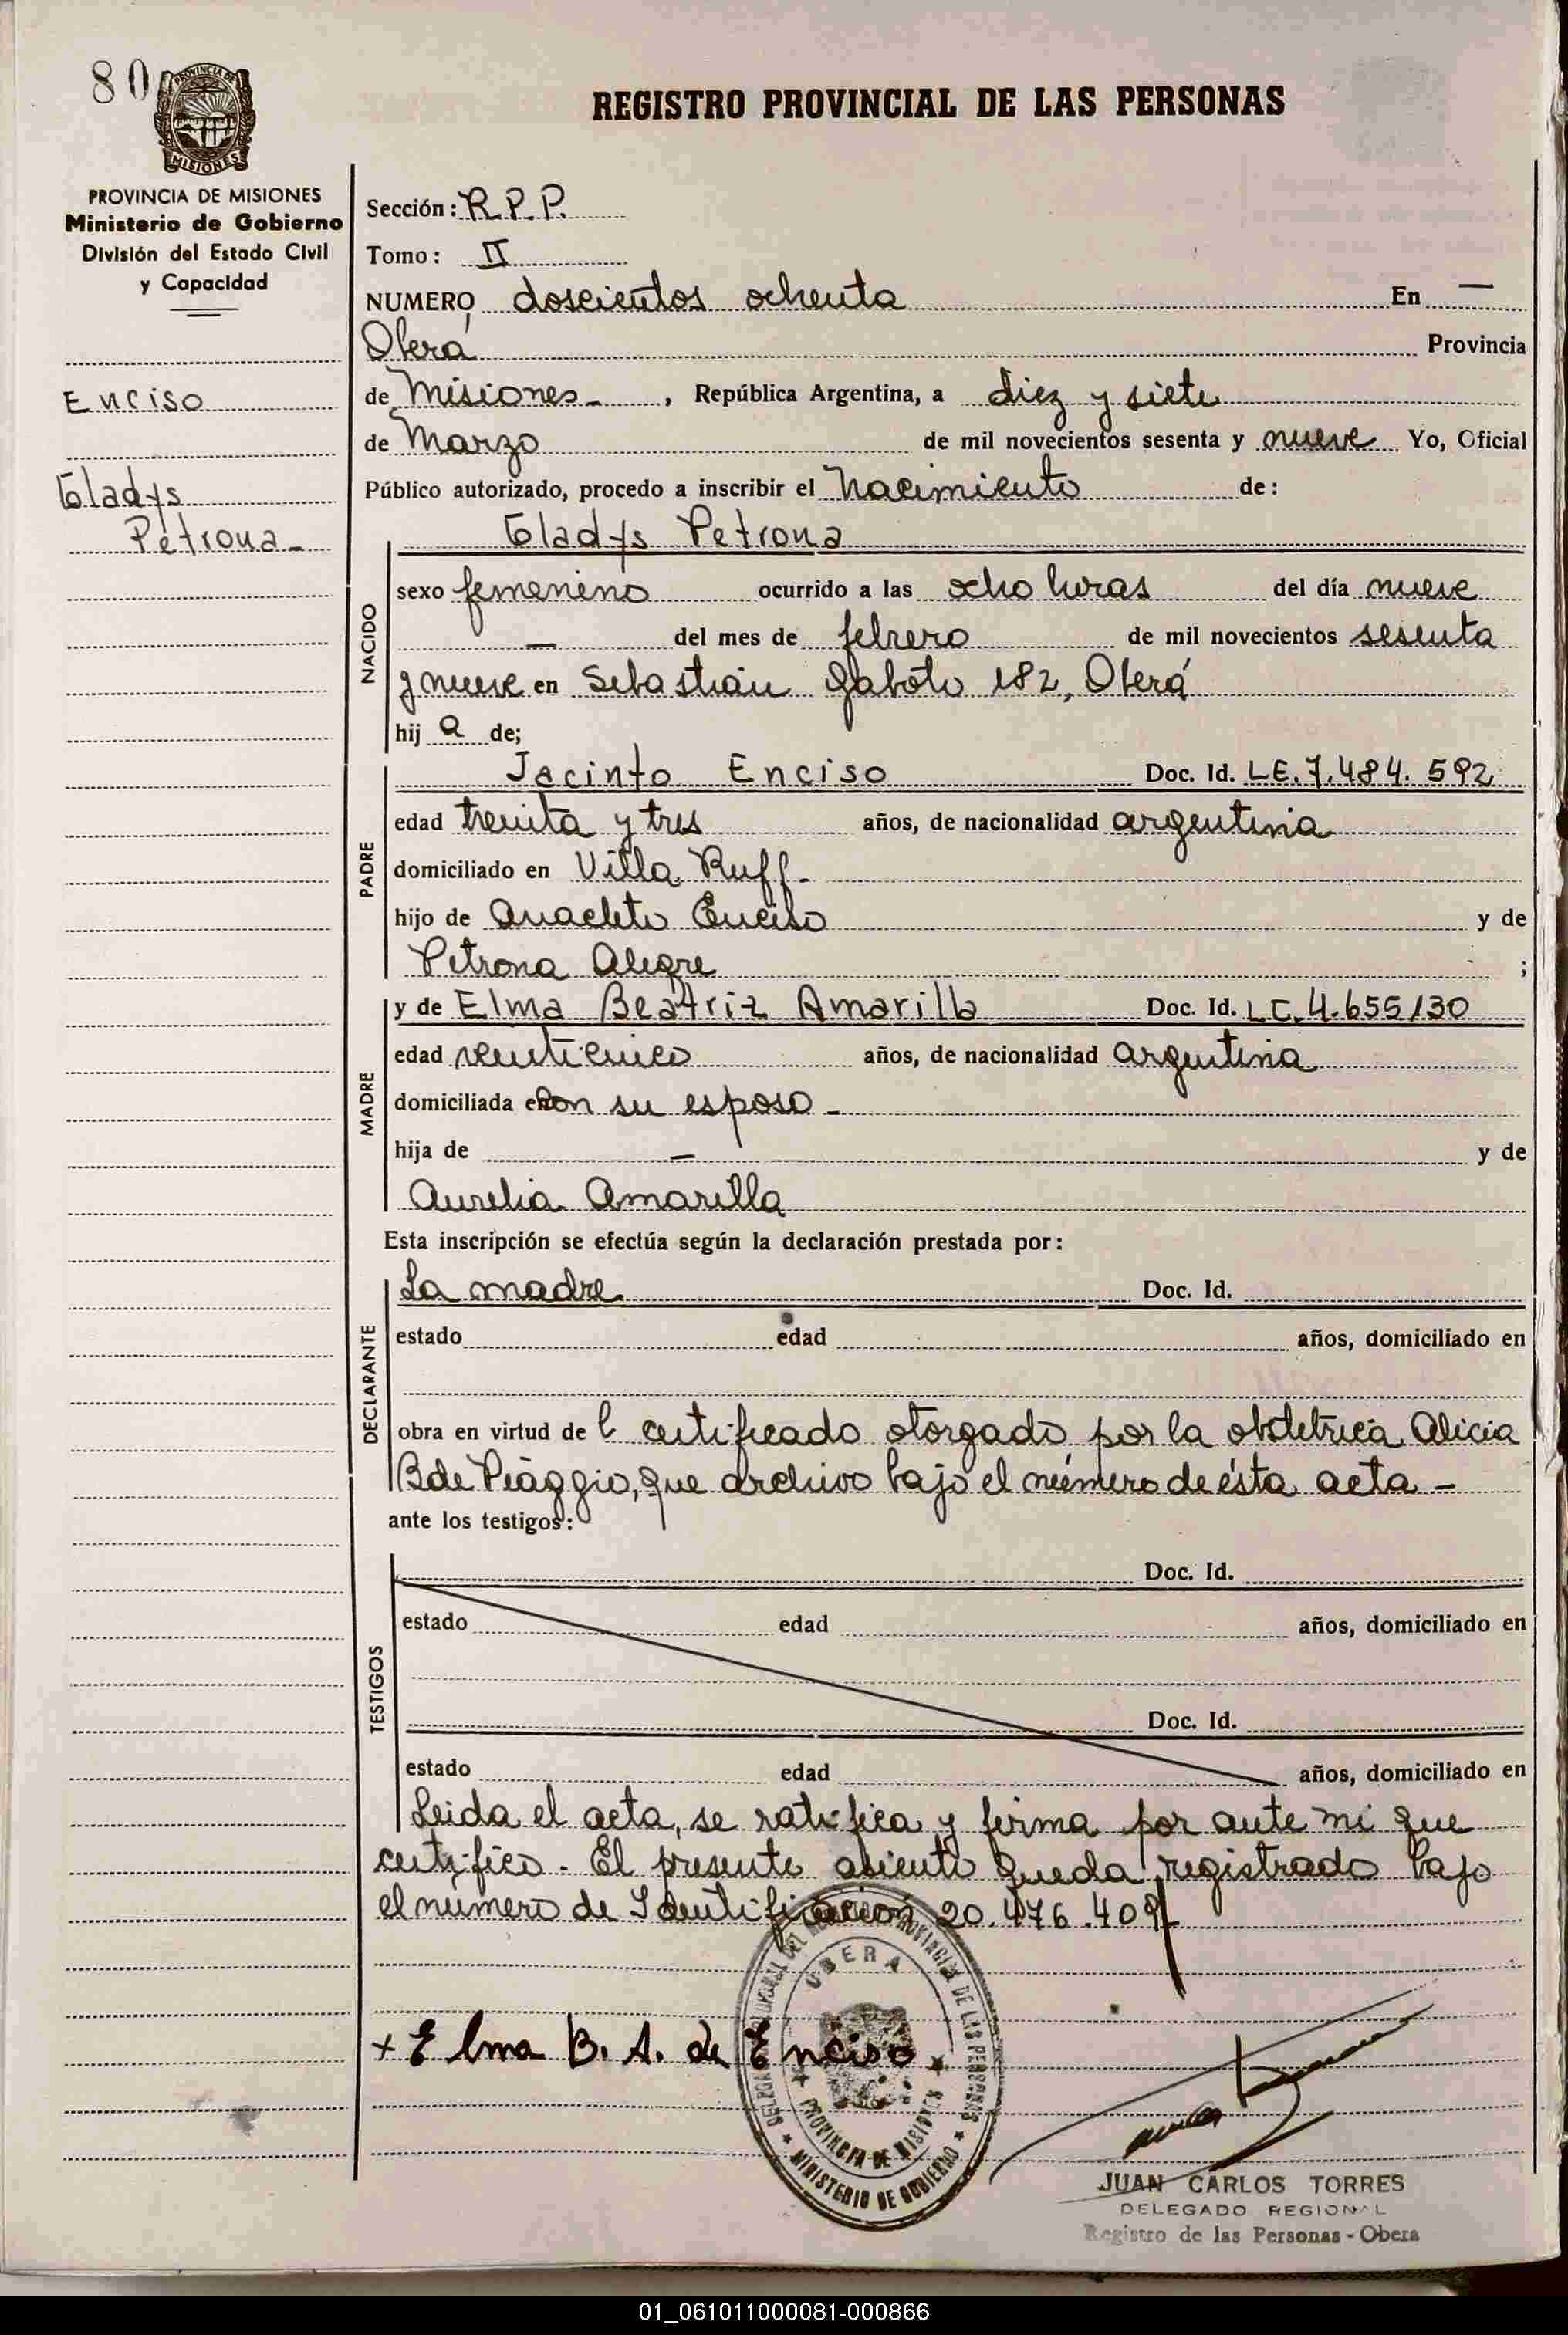 80
PROVINCIA DE
MISIONES
REGISTRO PROVINCIAL DE LAS PERSONAS
PROVINCIA DE MISIONES
Ministerio de Gobierno
División del Estado Civil
y Capacidad
Enciso
Gladys
Petrona -
Sección: R.P.P.
Tomo: II
NUMERO doscientos ochenta En —
Oberá Provincia
de Misiones - , República Argentina, a diez y siete
de Marzo de mil novecientos sesenta y nueve Yo, Oficial
Público autorizado, procedo a inscribir el Nacimiento de:
Gladys Petrona
NACIDO
sexo femenino ocurrido a las ocho horas del día nueve
— del mes de febrero de mil novecientos sesenta
y nueve en Sebastián Gaboto 182, Oberá
hij a de;
PADRE
Jacinto Enciso Doc. Id. LE. 7.484.592
edad treinta y tres años, de nacionalidad argentina
domiciliado en Villa Ruff.-
hijo de Anacleto Enciso y de
Petrona Alegre ;
MADRE
y de Elma Beatriz Amarilla Doc. Id. LC. 4.655130
edad veinticinco años, de nacionalidad argentina
domiciliada con su esposo -
hija de — y de
Aurelia Amarilla
Esta inscripción se efectúa según la declaración prestada por:
DECLARANTE
La madre Doc. Id.
estado edad años, domiciliado en
obra en virtud de l certificado otorgado por la obstetrica Alicia
B de Piaggio, que archivo bajo el número de ésta acta -
ante los testigos:
TESTIGOS
Doc. Id.
estado edad años, domiciliado en
Doc. Id.
estado edad años, domiciliado en
Leida el acta, se ratifica y firma por ante mi que
certifico - El presente asiento queda registrado bajo
el número de Identificación 20.476.409
+ Elma B. A. de Enciso
OBERA
PROVINCIA DE MISIONES
MINISTERIO DE GOBIERNO
JUAN CARLOS TORRES
DELEGADO REGIONAL
Registro de las Personas - Obera
01_061011000081-000866